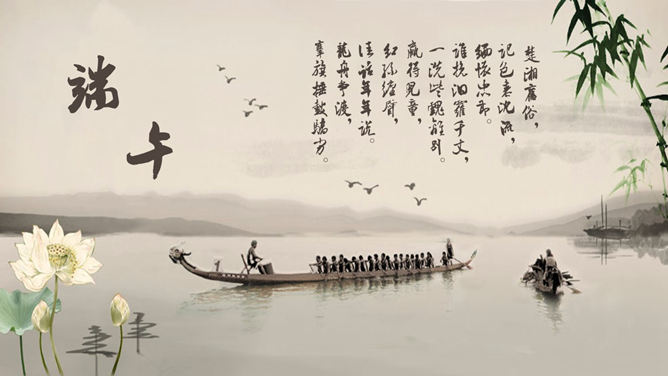 端午
楚湘舊俗，
记包黍沈流，
缅怀忠节。
谁挽汨罗千丈，
一洗些魂离别。
赢得兒童，
红丝缠臂，
佳话年年说。
龍舟争渡，
搴旗捶鼓骄劣。